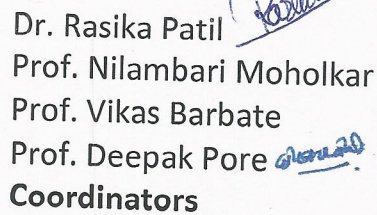 Dr. Rasika Patil
Prof. Nilambari Moholkar
Prof. Vikas Barbate
Prof. Deepak Pore
Coordinators